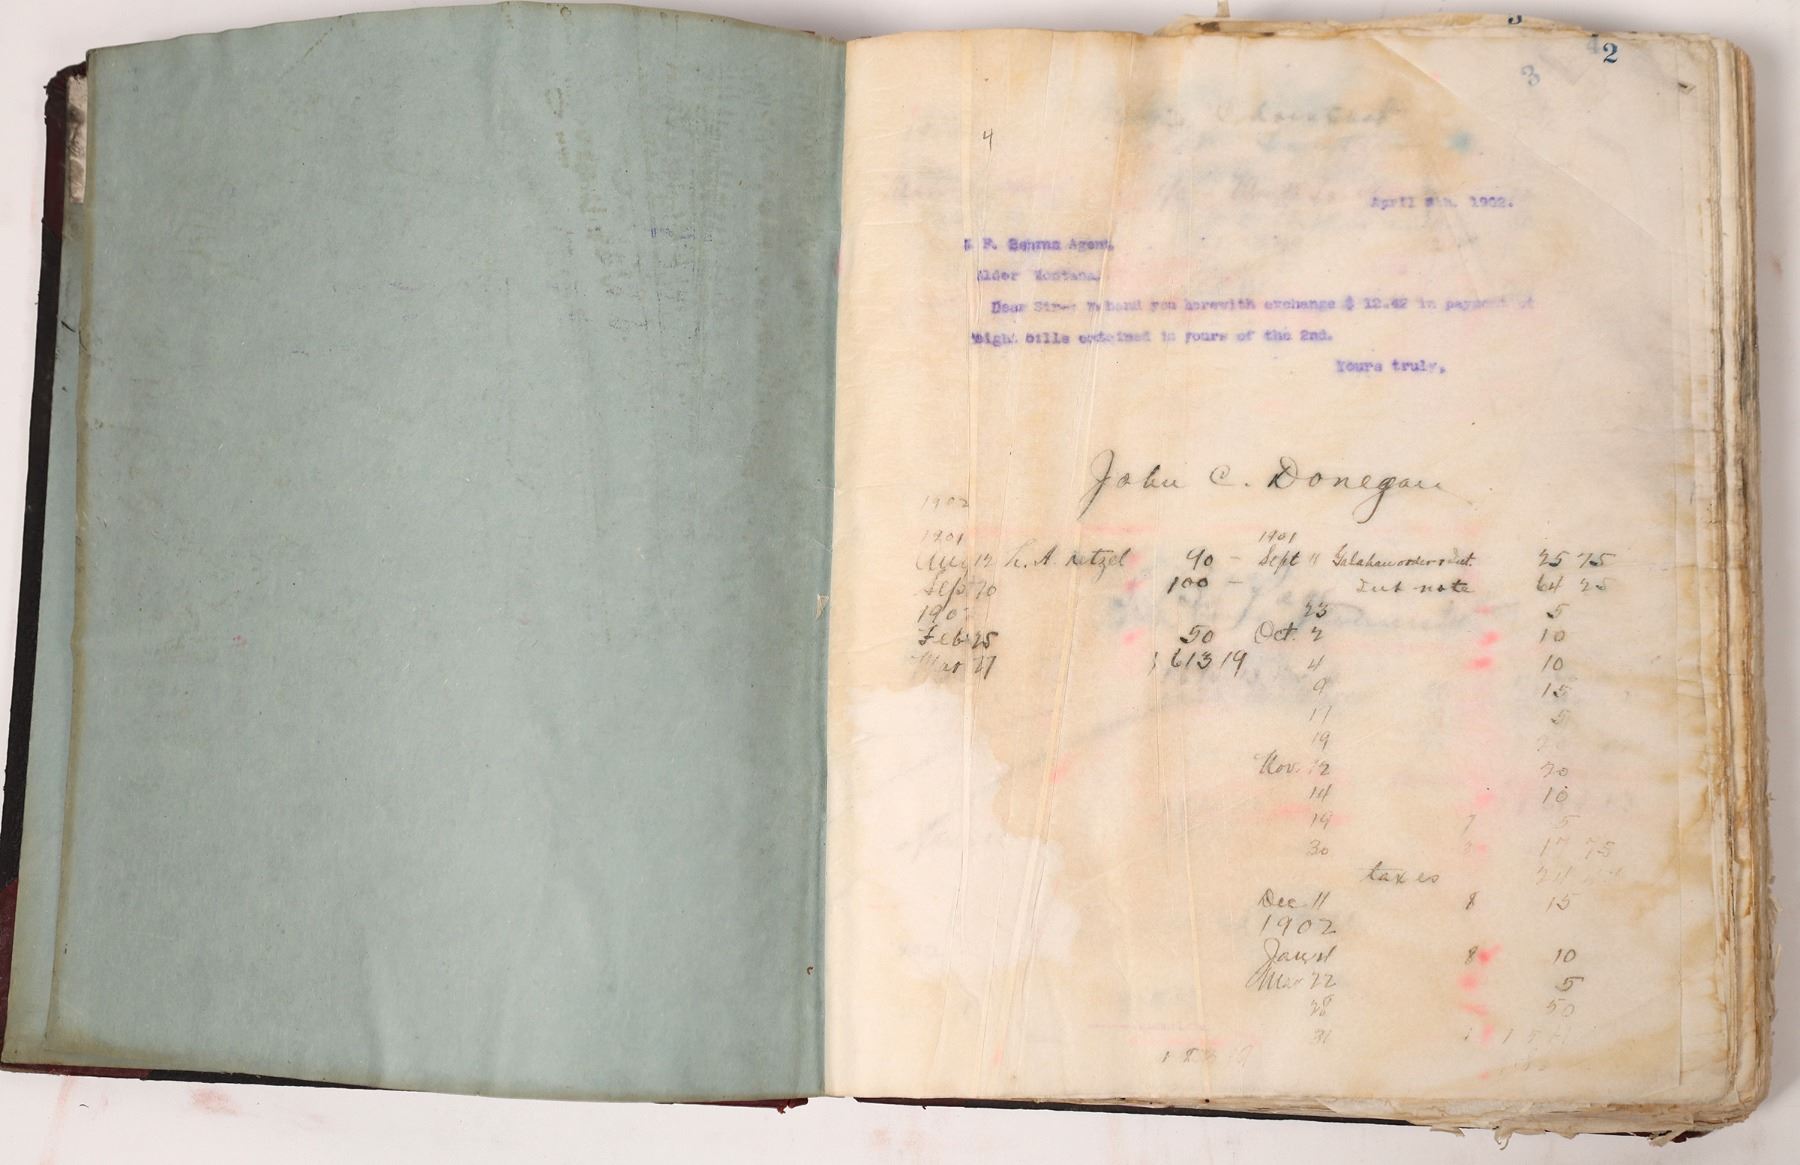 3
42
3
4
April 8th. 1902.
F. Agent,
Alder Montana.
Dear Sir-- We hand you herewith exchange $ 12.42 in payment of
eight bills contained in yours of the 2nd.
Yours truly,
John C. Donegan
1902
1901 1901
Aug 12 L. A. 90 — Sept 11 25 75
Sep 20 100 — Int note 64 25
190 23 5
Feb 25 50 Oct. 2 10
Mar 27 1 613 19 4 10
9 15
17 5
19
Nov. 12 20
14 10
19 7 5
30 17 75
taxes 24
Dec 11 8 15
1902
Jan 8 10
Mar 22 5
28 50
31 1